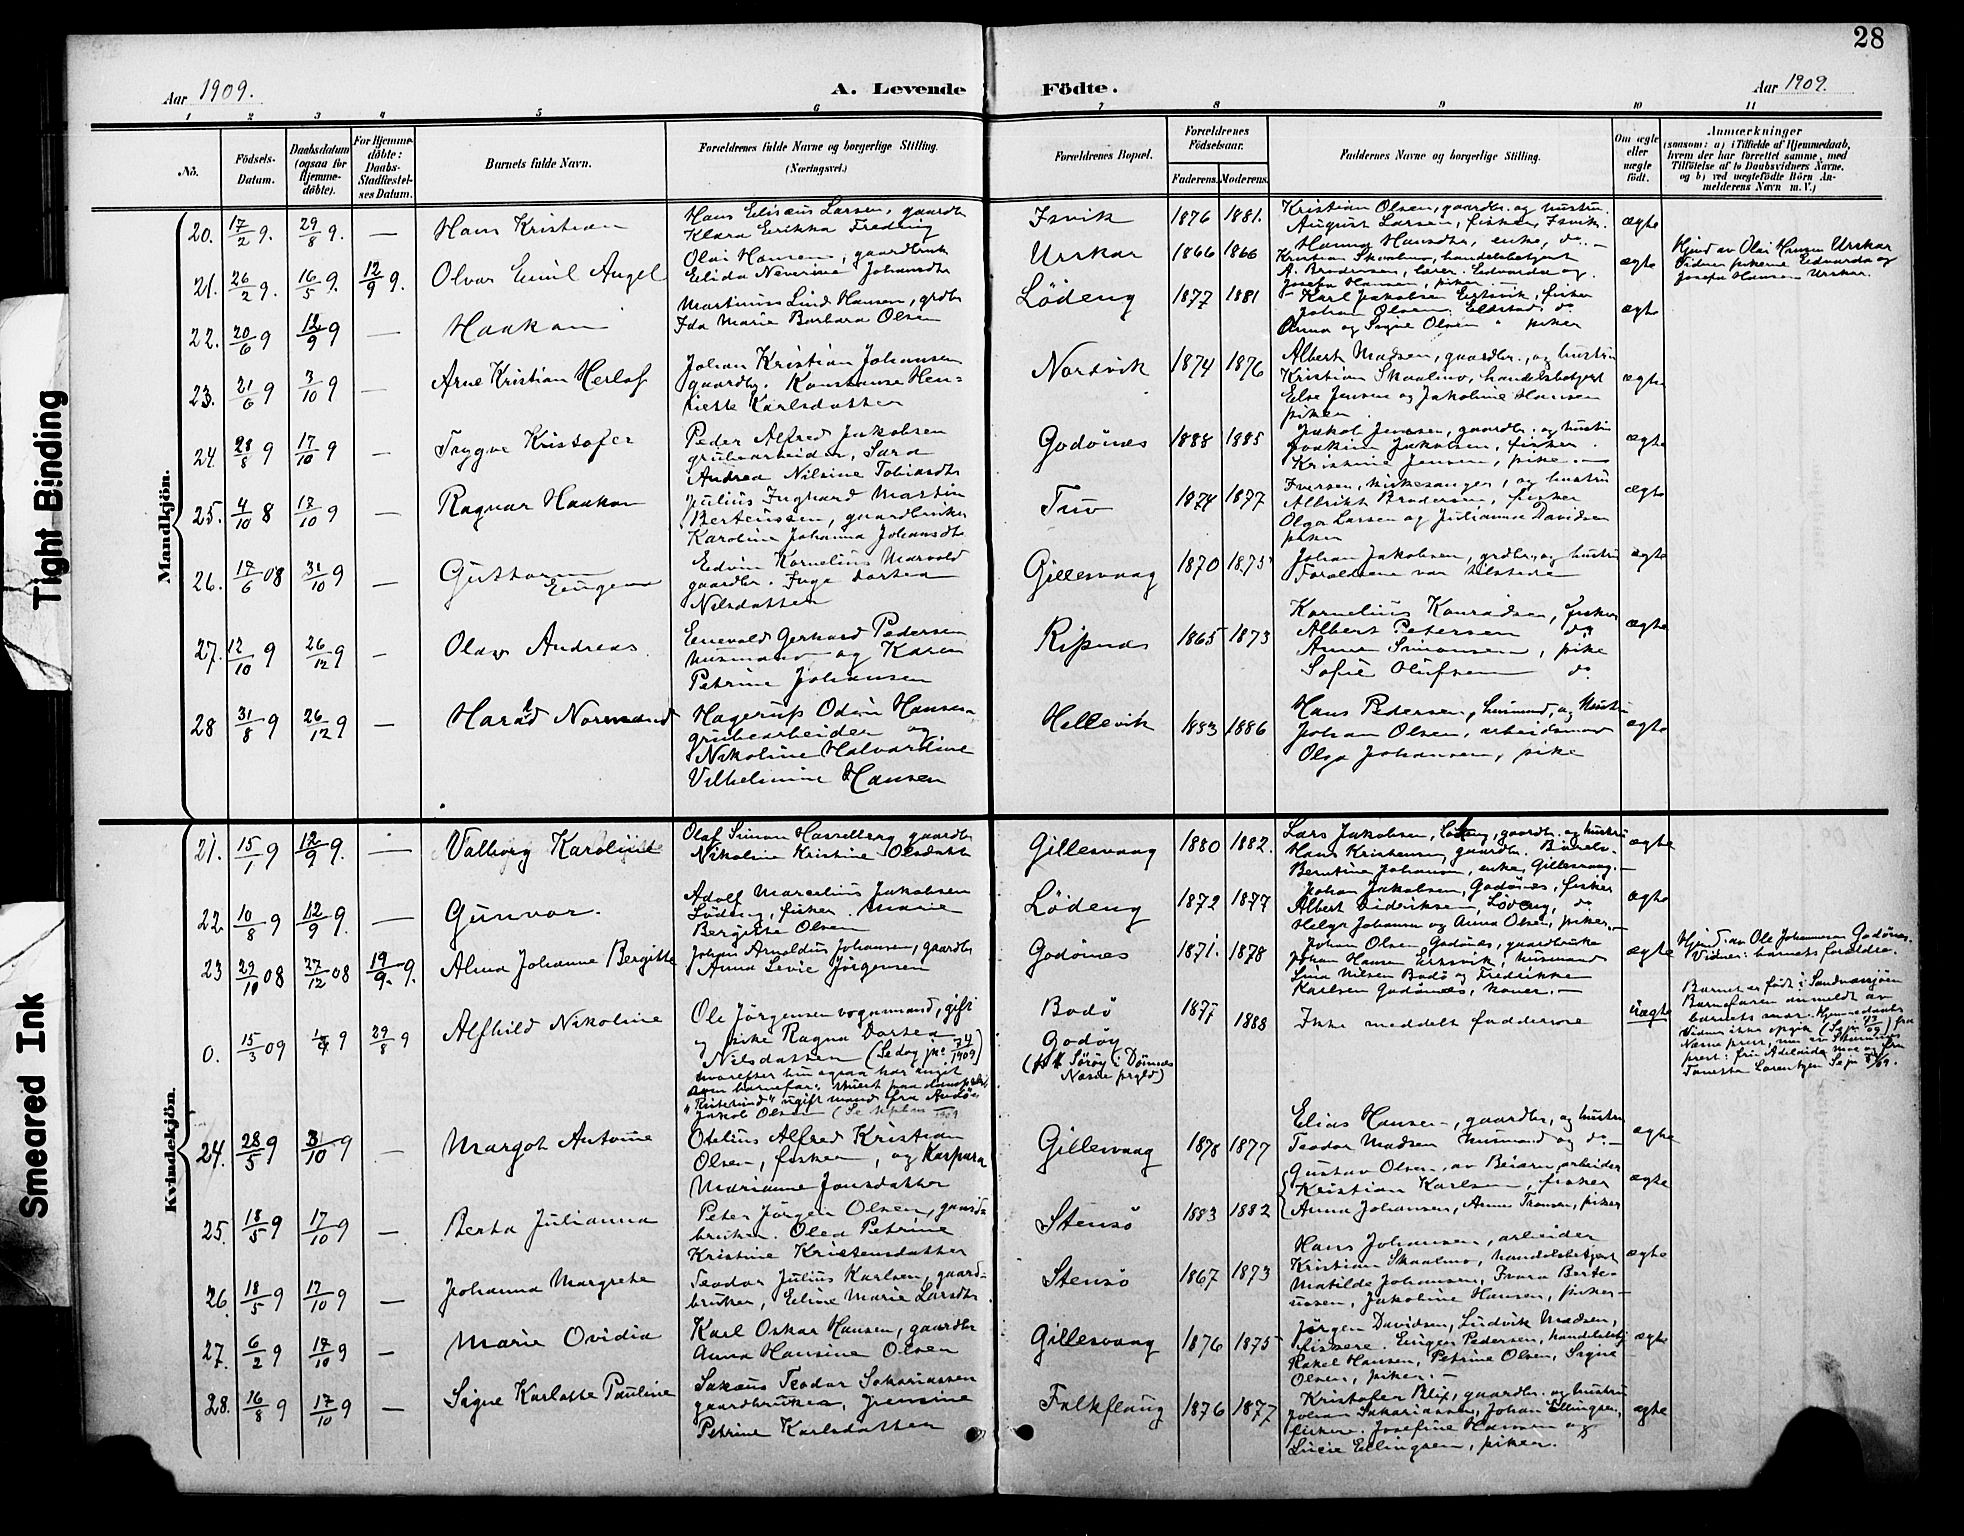 28
Aar 1909.
A. Levende Födte.
Aar 1909.
1 2 3 4 5 6 7 8 9 10 11
No.
Födsels-
Datum.
Daabsdatum
(ogsaa for
Hjemme-
döbte).
For Hjemme-
döbte:
Daabs-
Stadfæstel-
ses Datum.
Barnets fulde Navn.
Forældrenes fulde Navne og borgerlige Stilling.
(Næringsvei.)
Forældrenes Bopæl.
Forældrenes
Födselsaar.
Faderens. Moderens.
Faddernes Navne og borgerlige Stilling.
Om ægte
eller
uægte
födt.
Anmærkninger
(saasom: a) i Tilfælde af Hjemmedaab,
hvem der har forrettet samme, med
Tilföielse af to Daabsvidners Navne,
og b) ved uægtefödte Börn An-
melderens Navn m. V.)
Tight Binding
Smeared Ink
Mandkjön.
20. 17/2 9. 29/8 9. — Hans Kristian
Hans Elisæus Larsen, gaardbr
Klara Erikka Freding
Isvik 1876 1881.
Kristian Olsen, gaardbr. og hustru.
August Larsen, fisker, Isvik.
Hanna Hansdtr, enke, do. —
ægte
21. 26/2 9. 16/5 9. 12/9 9. Olvar Emil Angel
Olai Hansen, gaardbruk
Elida Neverine Johansdtr
Urskar 1866 1866
Kristian Skaalmo, handelsbetjent
A. Brodersen, lærer. Edvarda og
Josefa Hansen, piker —
ægte
Hjmd av Olai Hansen Urskar
Vidner pikerne Edvarda og
Josefa Hansen Urskar.
22. 20/6 9 12/9 9 — Haakon
Martinus Lind Hansen, grdbr
Ida Marie Barbara Olsen
Lödeng 1877 1881
Karl Jakobsen Ertsvik, fisker
Johan Olsen, Elstad, do
Anna og Signe Olsen " piker
ægte
23. 21/6 9 3/10 9 — Arne Kristian Herlof
Johan Kristian Johansen
gaardbr. Konstanse Hen-
riette Karlsdatter
Nordvik 1874 1876
Albert Madsen, gaardbr., og hustru
Kristian Skaalmo, handelsbetjent
Else Jensen og Jakobine Hansen
piker.
ægte
24. 28/8 9 17/10 9 — Trygve Kristofer
Peder Alfred Jakobsen
grubearbeider, Sara
Andrea Nilsine Tobiasdtr
Godönes 1888 1885
Jakob Jensen, gaardbr. og hustru
Joakim Jakobsen, fisker.
Kristine Jensen, pike. —
ægte
25. 4/10 8 17/10 9 — Ragnar Haakon
Julius Inghard Martin
Berteussen, gaardbruker
Karoline Johanna Johansdtr
Tuv 1874 1877
Iversen, kirkesanger, og hustru
Albrikt Brodersen, fisker
Olga Larsen og Julianna Davidsen
piker
ægte
26. 17/6 08 31/10 9 — Guttorm
Eugen
Edvin Kornelius Marvold
gaardbr. Inga Dortea
Nilsdatter
Gillesvaag 1870 1875
Johan Jakobsen, grdbr., og hustru
Forældrene var tilstede
ægte
27. 12/10 9 26/12 9 — Olav Andreas
Enevold Gerhard Pedersen
husmand og Karen
Petrine Johansen
Ripnes 1865 1873
Kornelius Konradsen, fisker
Albert Petersen do
Anna Simonsen, pike
Sofie Olufsen do
ægte
28 31/8 9 26/12 9 — Harald Normand
Hagerup Odin Hansen
grubearbeider og
Nikoline Halvardine
Vilhelmine Hansen
Hellevik 1883 1886
Hans Pedersen, husmand, og hustru
Johan Olsen, arbeidsmand
Olga Johansen, pike
ægte
Kvindekjön.
21. 15/1 9 12/9 9. — Valborg Karoline
Olaf Simon Hasselberg gaardbr
Nikoline Kristine Olsdatt
Gillesvaag 1880 1882.
Lars Jakobsen, Lödeng, gaardbr. og hustru
Hans Kristensen, gaardbr.
Berntine Johansen, enke, Gillesvaag. —
ægte
22 10/8 9 12/9 9. — Gunvor.
Adolf Marelius Jakobsen
Lödeng, fisker. Marie
Bergitte Olsen
Lödeng 1872 1877
Johan Jakobsen, Godönes, fisker
Albert Didriksen, Lödeng, do
Helga Johansen og Anna Olsen, piker. —
ægte
23 29/10 08 27/12 08 19/9 9. Alma Johanne Bergitte
Johan Arnoldus Johansen, gaardbr
Anna Levie Jörgensen
Godönes 1871. 1878
Johan Olsen Godönes, gaardbruker
Johan Hansen Ertsvik, husmand
Lina Nilsen Bodö og Fredrikke
Karlsen Godönes, koner. —
ægte
Hjmd. av Ole Johannesen Godönes.
Vidner: barnets forældre.
0. 15/3 09 9 29/8 9 Alfhild Nikoline
Ole Jörgensen vognmand, gift
og pike Ragna Dortea
Nilsdatter (Se dog jno 74/1909)
hvorefter hun ogsaa har angit
som barnefar: paa
ugift mand fra
Jakob Olsen
Bodö
Godöy
Söröy i Dönnes
Nesne prgld)
1877
1888
Ikke meddelt faddernavne
uægte
Barnet er födt i Sandnessjöen
Barnefaren anmeldt av
barnets mor. Hjemmedaabs
24. 28/5 9 31/10 9 — Margot Antonie
Otelius Alfred Kristian
Olsen, fisker, og Kaspara
Marianne Jonsdatter
Gillesvaag 1878 1877
Elias Hansen, gaardbr, og hustru
Teodor Madsen husmand og do —
ægte
25. 18/5 9 17/10 9 — Berta Julianna
Peter Jörgen Olsen, gaard-
bruker. Olea Petrine
Kristine Kristensdatter
Stensö 1883 1882
Gustav Olsen, av Beiarn, arbeider
Kristian Karlsen, fisker
Anna Johansen, Anne Tronsen, piker
ægte
26. 18/5 9 17/10 9 — Johanna Margrete
Teodor Julius Karlsen, gaard-
bruker, Eline Marie Larsdtr.
Stensö 1867 1873
Hans Johansen, arbeider
Kristian Skaalmo, handelsbetjent
Matilde Johansen, Ivara Berte-
ussen, Jakobine Hansen, piker —
ægte
27. 6/2 9 17/10 9 — Marie Ovidia
Karl Oskar Hansen, gaardbr
Anna Hansine Olsen
Gillesvaag 1876 1875
Jörgen Davidsen, Ludvik Madsen,
fiskere. Eugen Pedersen, handelsbetj
Rakel Hansen, Petrine Olsen, Signe
Olsen, piker. —
ægte
28. 16/8 9 17/10 9 — Signe Karlotte Pauline
Sakæus Teodor Sakariassen
gaardbruker, Jensine
Petrine Karlsdatter
Falkflaug 1876 1877
Kristofer Blix, gaardbr. og hustru
Johan Sakariassen, Johan Ellingsen,
fiskere. Josefine Hansen og
Lucie Ellingsen, piker.
ægte